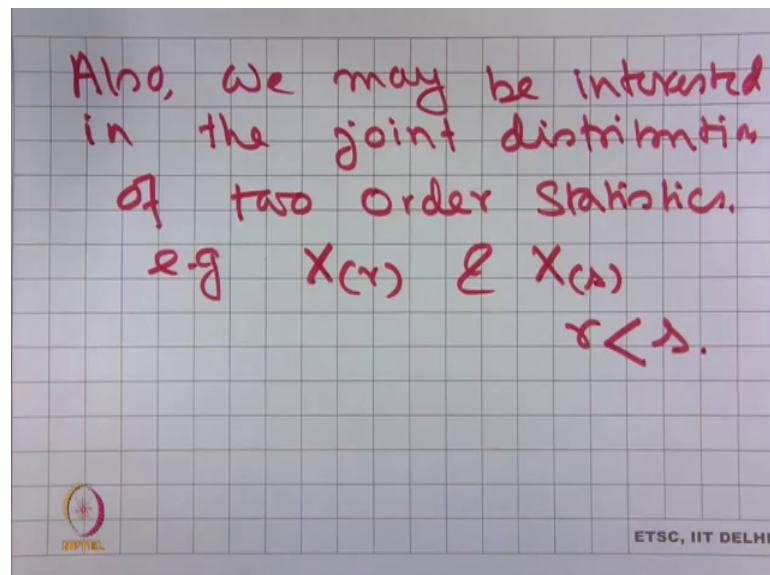 Also, we may be interested
in the joint distribution
of two order statistics.
e.g X(r) & X(s)
r < s.
NPTEL
ETSC, IIT DELHI